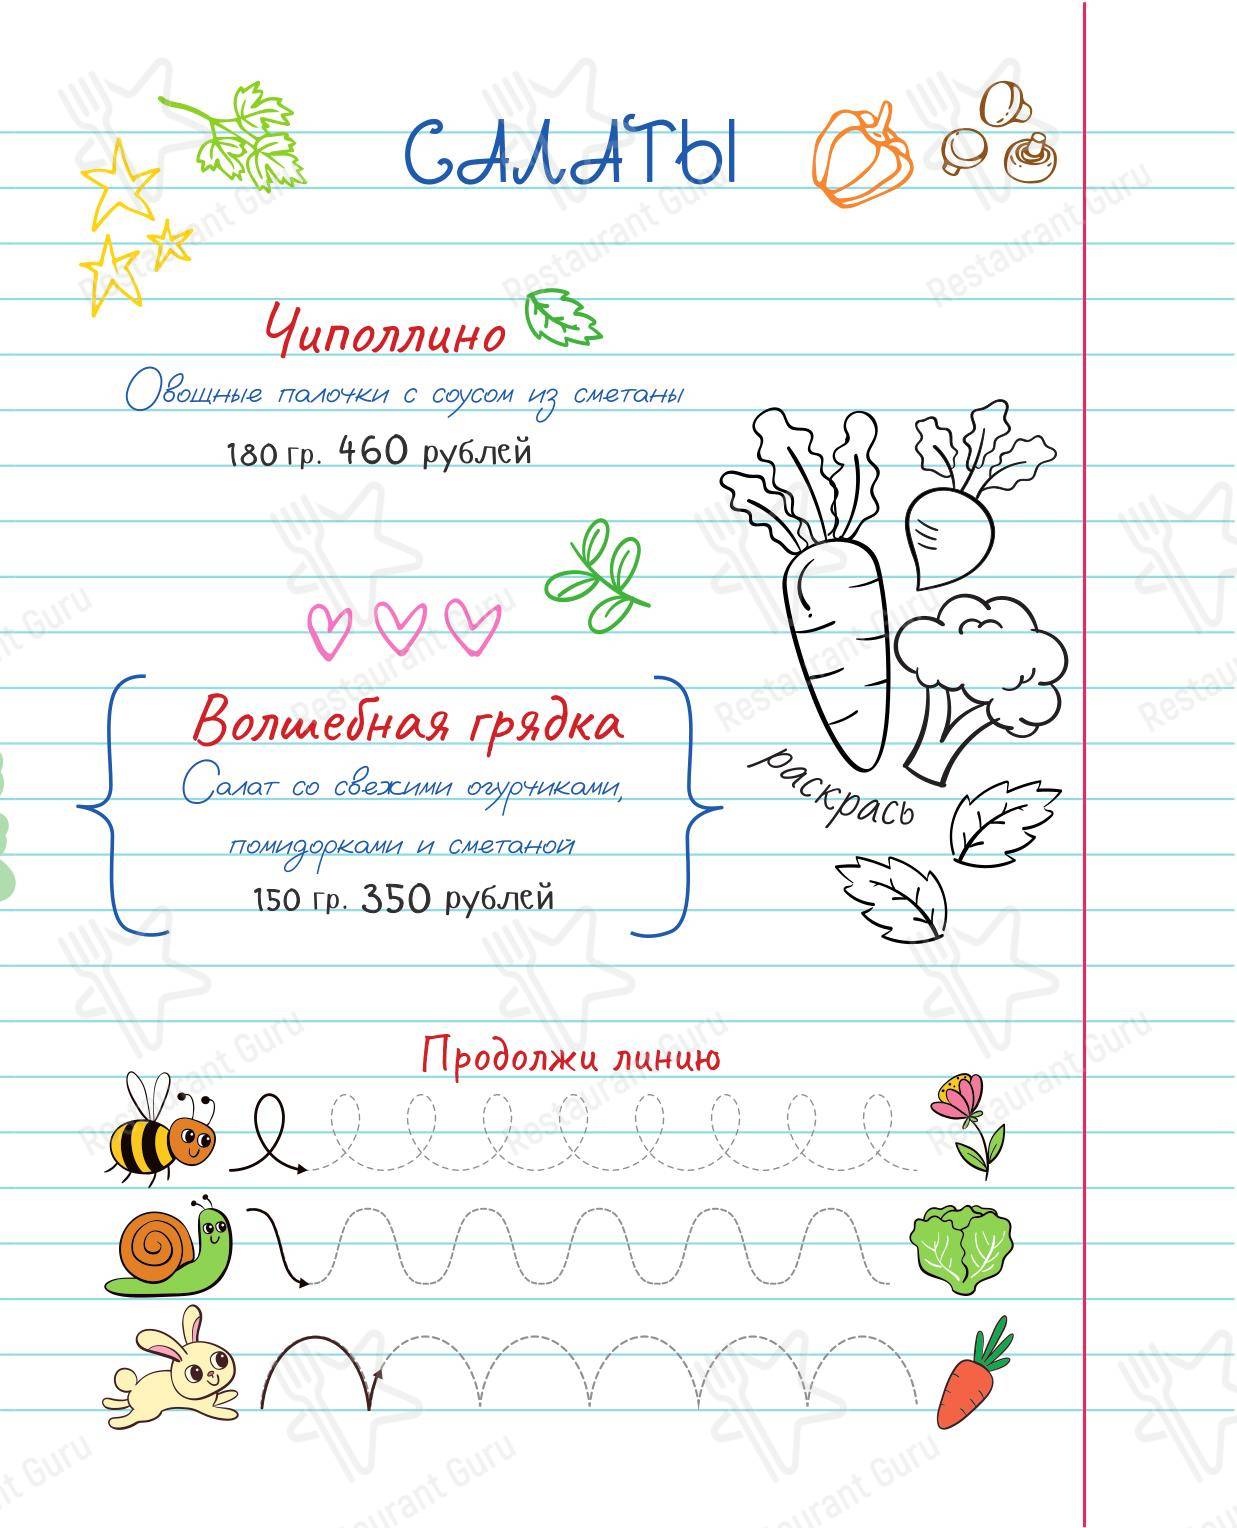 САЛАТЫ
Чиполлино
Овощные палочки с соусом из сметаны
180 гр. 460 рублей
Волшебная грядка
Салат со свежими огурчиками,
помидорками и сметаной
150 гр. 350 рублей
раскрась
Продолжи линию
Restaurant Guru